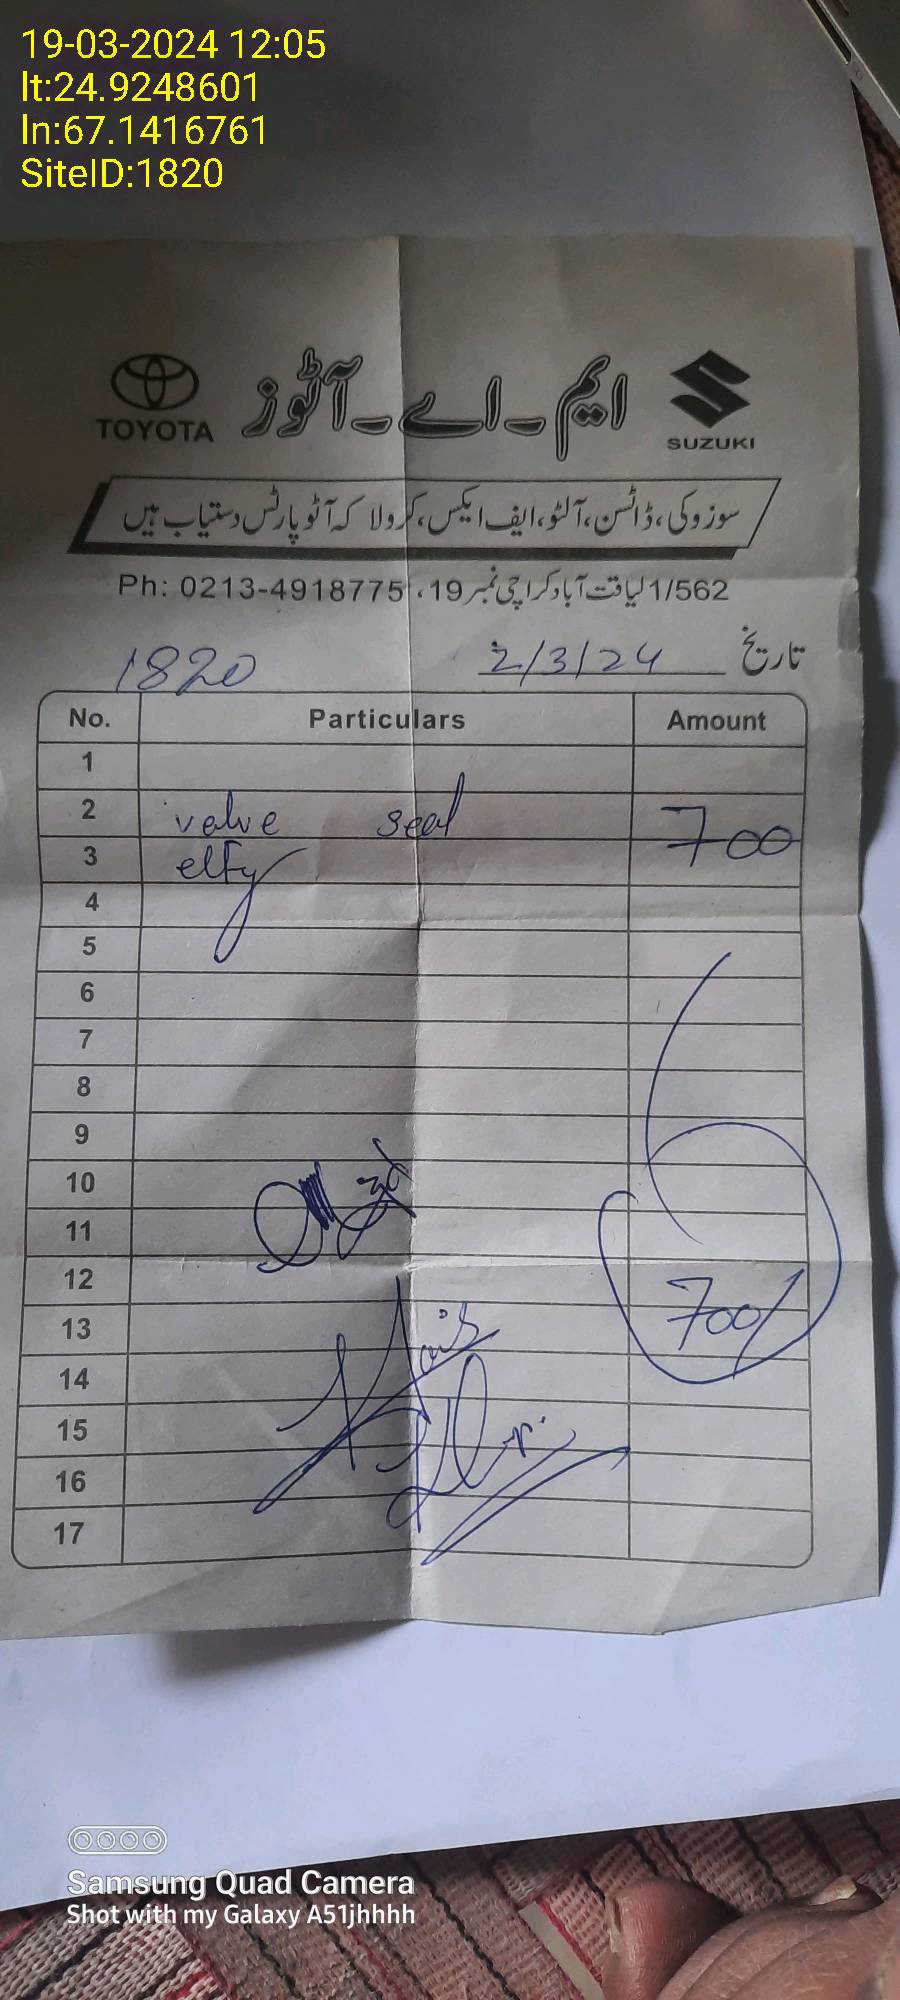 19-03-2024 12:05
lt:24.9248601
ln:67.1416761
SiteID:1820
TOYOTA
ایم-اے-آٹوز
SUZUKI
سوزوکی، ڈاٹسن، آلٹو، ایف ایکس، کرولا کہ آٹو پارٹس دستیاب ہیں
1/562 لیاقت آباد کراچی نمبر 19، Ph: 0213-4918775
1820
تاریخ 2/3/24
No. Particulars Amount
1
2 valve seal 700
3 elfy
4
5
6
7
8
9
10
11
12
700/
13
14
15
16
17
Samsung Quad Camera
Shot with my Galaxy A51jhhhh